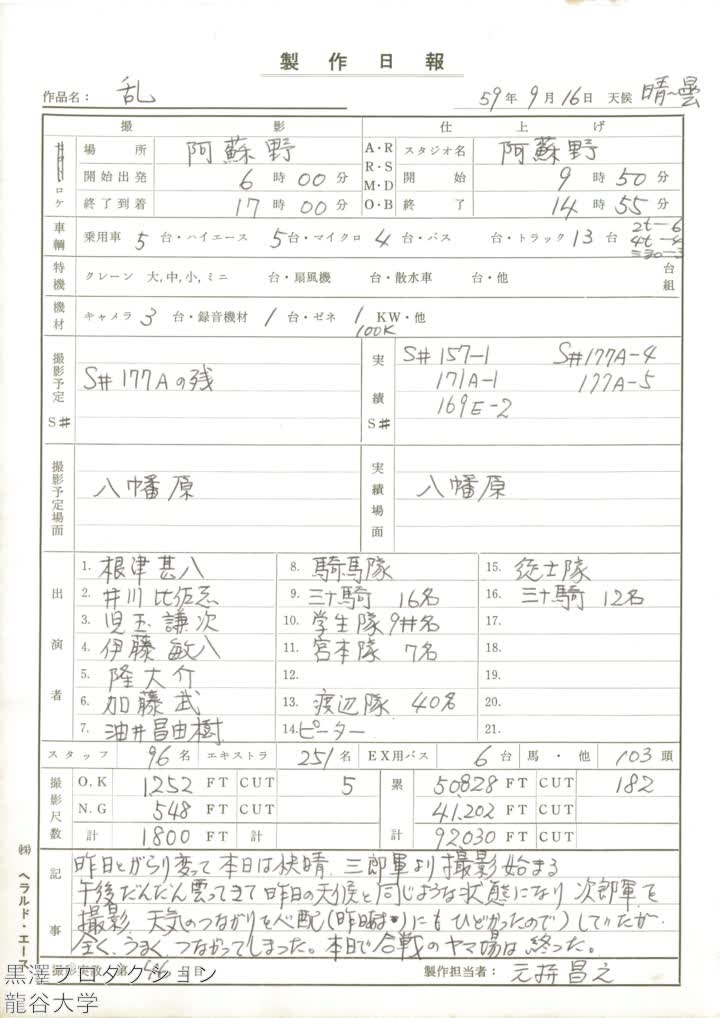 製作日報
作品名： 乱 59年 9月 16日 天候 晴〜曇
撮影 仕上げ
ロケ 場所 阿蘇野 A・R スタジオ名 阿蘇野
開始出発 6時 00分 R・S 開始 9時 50分
M・D
終了到着 17時 00分 O・B 終了 14時 55分
車輌 乗用車 5台・ハイエース 5台・マイクロ 4台・バス 台・トラック 13台 2t-6
4t-4
特機 クレーン 大,中,小,ミニ 台・扇風機 台・散水車 台・他 台組
機材 キャメラ 3台・録音機材 1台・ゼネ 1 KW・他
100K
撮影予定 S# S#177Aの残 実績 S# S#157-1 S#177A-4
171A-1 177A-5
169E-2
撮影予定場面 八幡原 実績場面 八幡原
出演者
1. 根津甚八 8. 騎馬隊 15. 徒士隊
2. 井川比佐志 9. 三十騎 16名 16. 三十騎 12名
3. 児玉謙次 10. 学生隊 9#名 17.
4. 伊藤敏八 11. 宮本隊 7名 18.
5. 隆大介 12. 19.
6. 加藤武 13. 渡辺隊 40名 20.
7. 油井昌由樹 14. ピーター 21.
スタッフ 96名 エキストラ 251名 EX用バス 6台 馬・他 103頭
撮影尺数 O.K 1252 FT CUT 5 累計 50,828 FT CUT 182
N.G 548 FT CUT 41,202 FT CUT
計 1800 FT 計 92,030 FT
記事
昨日とがらり変って本日は快晴、三郎軍より撮影始まる
午後だんだん雲ってきて昨日の天候と同じような状態になり次郎軍を
撮影、天気のつながりを心配(昨日はにもひどかったので)していたが
全く、うまくつながってしまった。本日で合戦のヤマ場は終った。
撮影実数 第46日目 製作担当者： 元持昌之
㈱ヘラルド・エース
黒澤プロダクション
龍谷大学